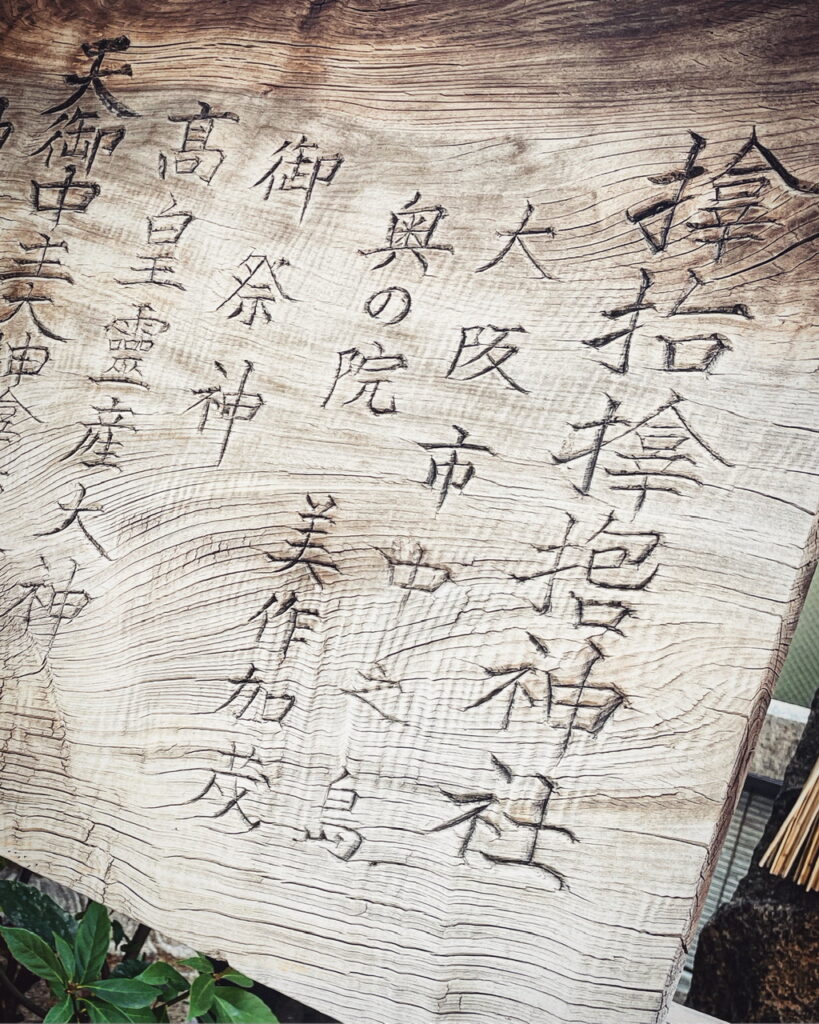 𪮷抬𪮷𪮇神社
大阪市中之島
奥の院 美作加茂
御祭神
髙皇靈産大神
天御中主大神